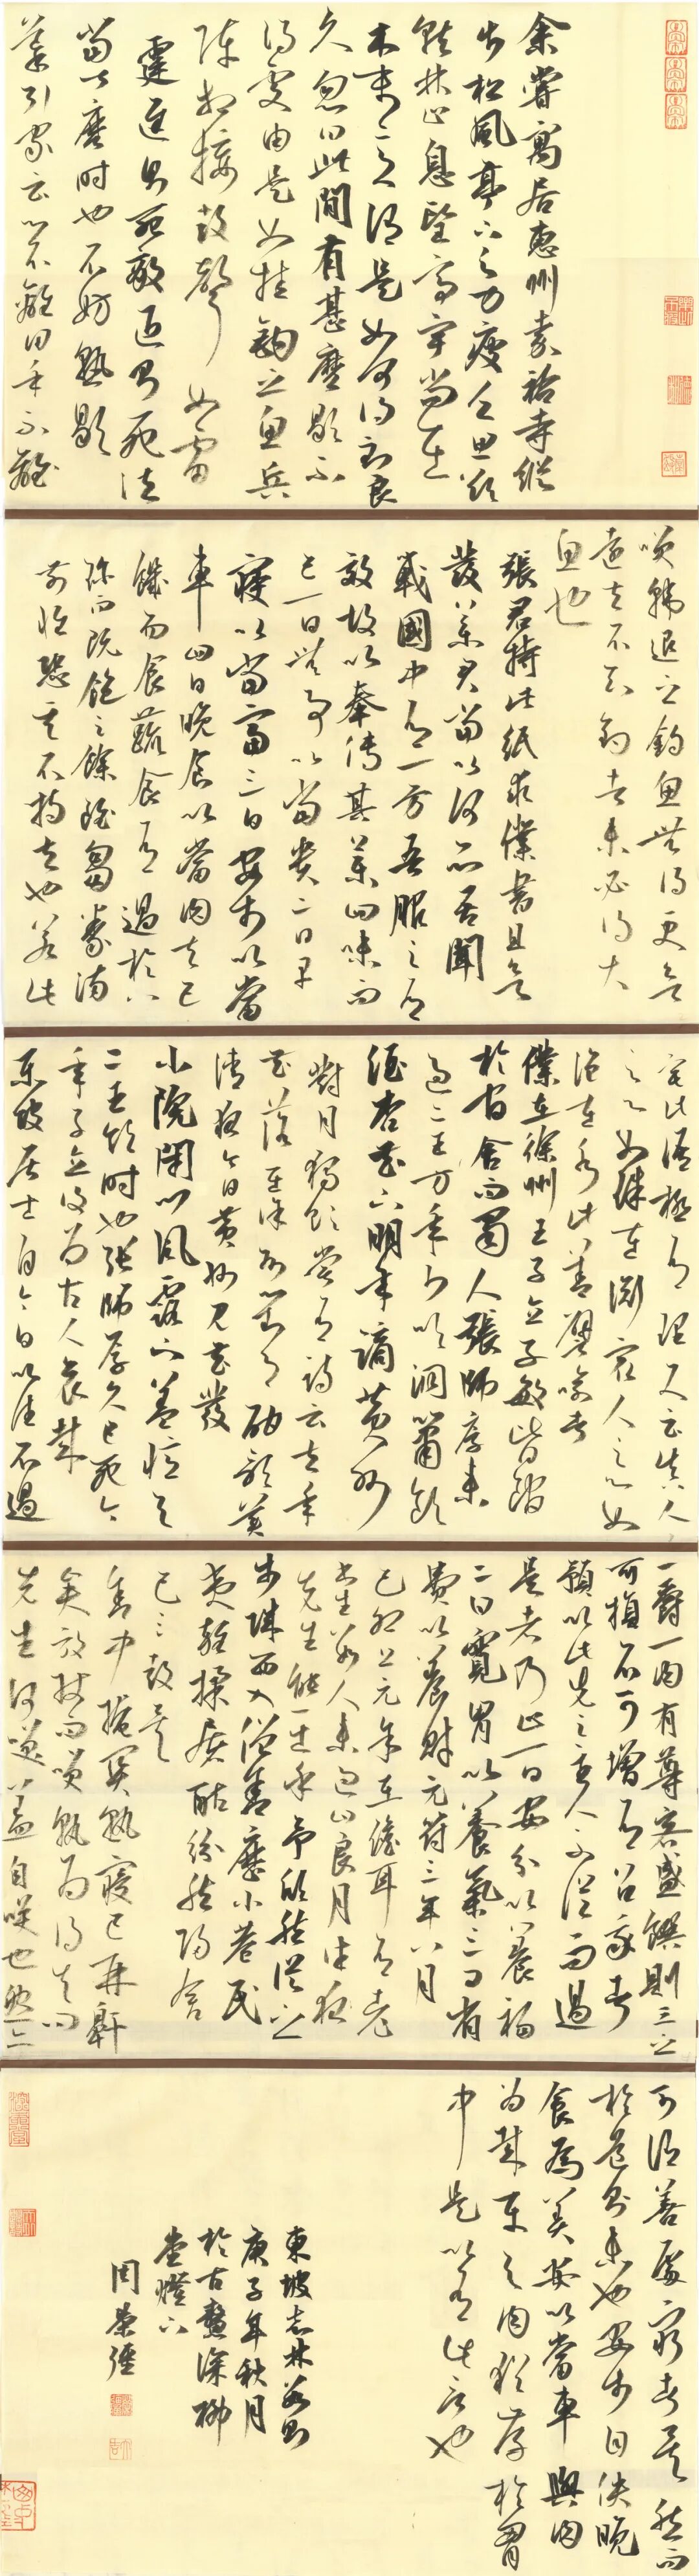 余嘗寓居惠州嘉祐寺縱
步松風亭下足力疲乏思欲
就林止息望亭宇尚在
木末意謂是如何得到良
久忽曰此間有甚麼歇不
得處由是如挂鉤之魚兵
陣相接鼓聲如雷
霆進則死敵退則死法
當甚麼時也不妨熟歇
導引家云心不離田手不離
笑韓退之釣魚無得更欲
遠去不知釣者未必得大
魚也
張君持此紙求僕書且欲
發藥君當以何品吾聞
戰國中有一方吾服之有
效故以奉傳其藥四味而
已一曰無事以當貴二曰早
寢以當富三曰安步以當
車四曰晚食以當肉夫已
饑而食蔬食有過於八
珍而既飽之餘雖芻豢滿
前惟恐其不持去也若此
宅此語極有理又云真人
之心如珠在淵眾人之心如
泡在水此善譬喻者
僕在徐州王子立子敏皆館
於官舍而蜀人張師厚來
過二王方年少吹洞簫飲
酒杏花下明年謫黃州
對月獨飲嘗有詩云去年
花落在徐州對月酣歌美
清夜今日黃州見花發
小院閉門風露下蓋憶與
二王飲時也張師厚久已死今
年子立復為古人哀哉
東坡居士自今日以往不過
一爵一肉有尊客盛饌則三之
可損不可增有召我者
預以此先之主人不從而過
是者乃止一曰安分以養福
二曰寬胃以養氣三曰省
費以養財元符三年八月
己卯上元余在儋耳有老
書生數人來過曰良月佳夜
先生能一出乎予欣然從之
步城西入僧舍歷小巷民
夷雜揉屠酤紛然歸舍
已三鼓矣
舍中掩關熟寢已再鼾
矣放杖而笑孰為得失問
先生何笑蓋自笑也然亦
可謂善處窮者矣然而
於道則未也安步自佚晚
食為美安以當車與肉
為哉車與肉猶存於胸
中是以有此言也
東坡志林數則
庚子年秋月
於古螯深柳
堂燈下
周榮強